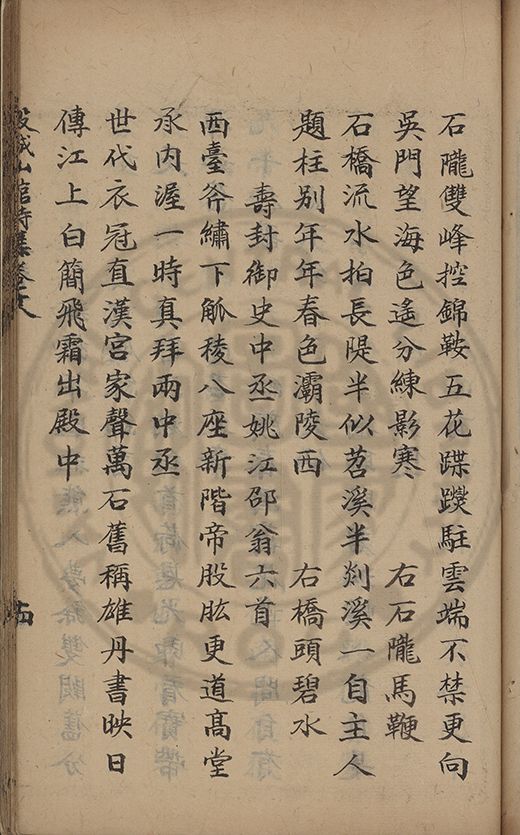 石隴雙峰控錦鞍五花蹀躞駐雲端不禁更向
吳門望海色遙分練影寒　右石隴馬鞭
石橋流水拍長隄半似苕溪半剡溪一自主人
題柱別年年春色灞陵西　右橋頭碧水
壽封御史中丞姚江邵翁六首
西臺斧繡下觚稜八座新階帝股肱更道高堂
承内渥一時真拜兩中丞
世代衣冠直漢宮家聲萬石舊稱雄丹書映日
傳江上白簡飛霜出殿中
穀城山館詩集卷